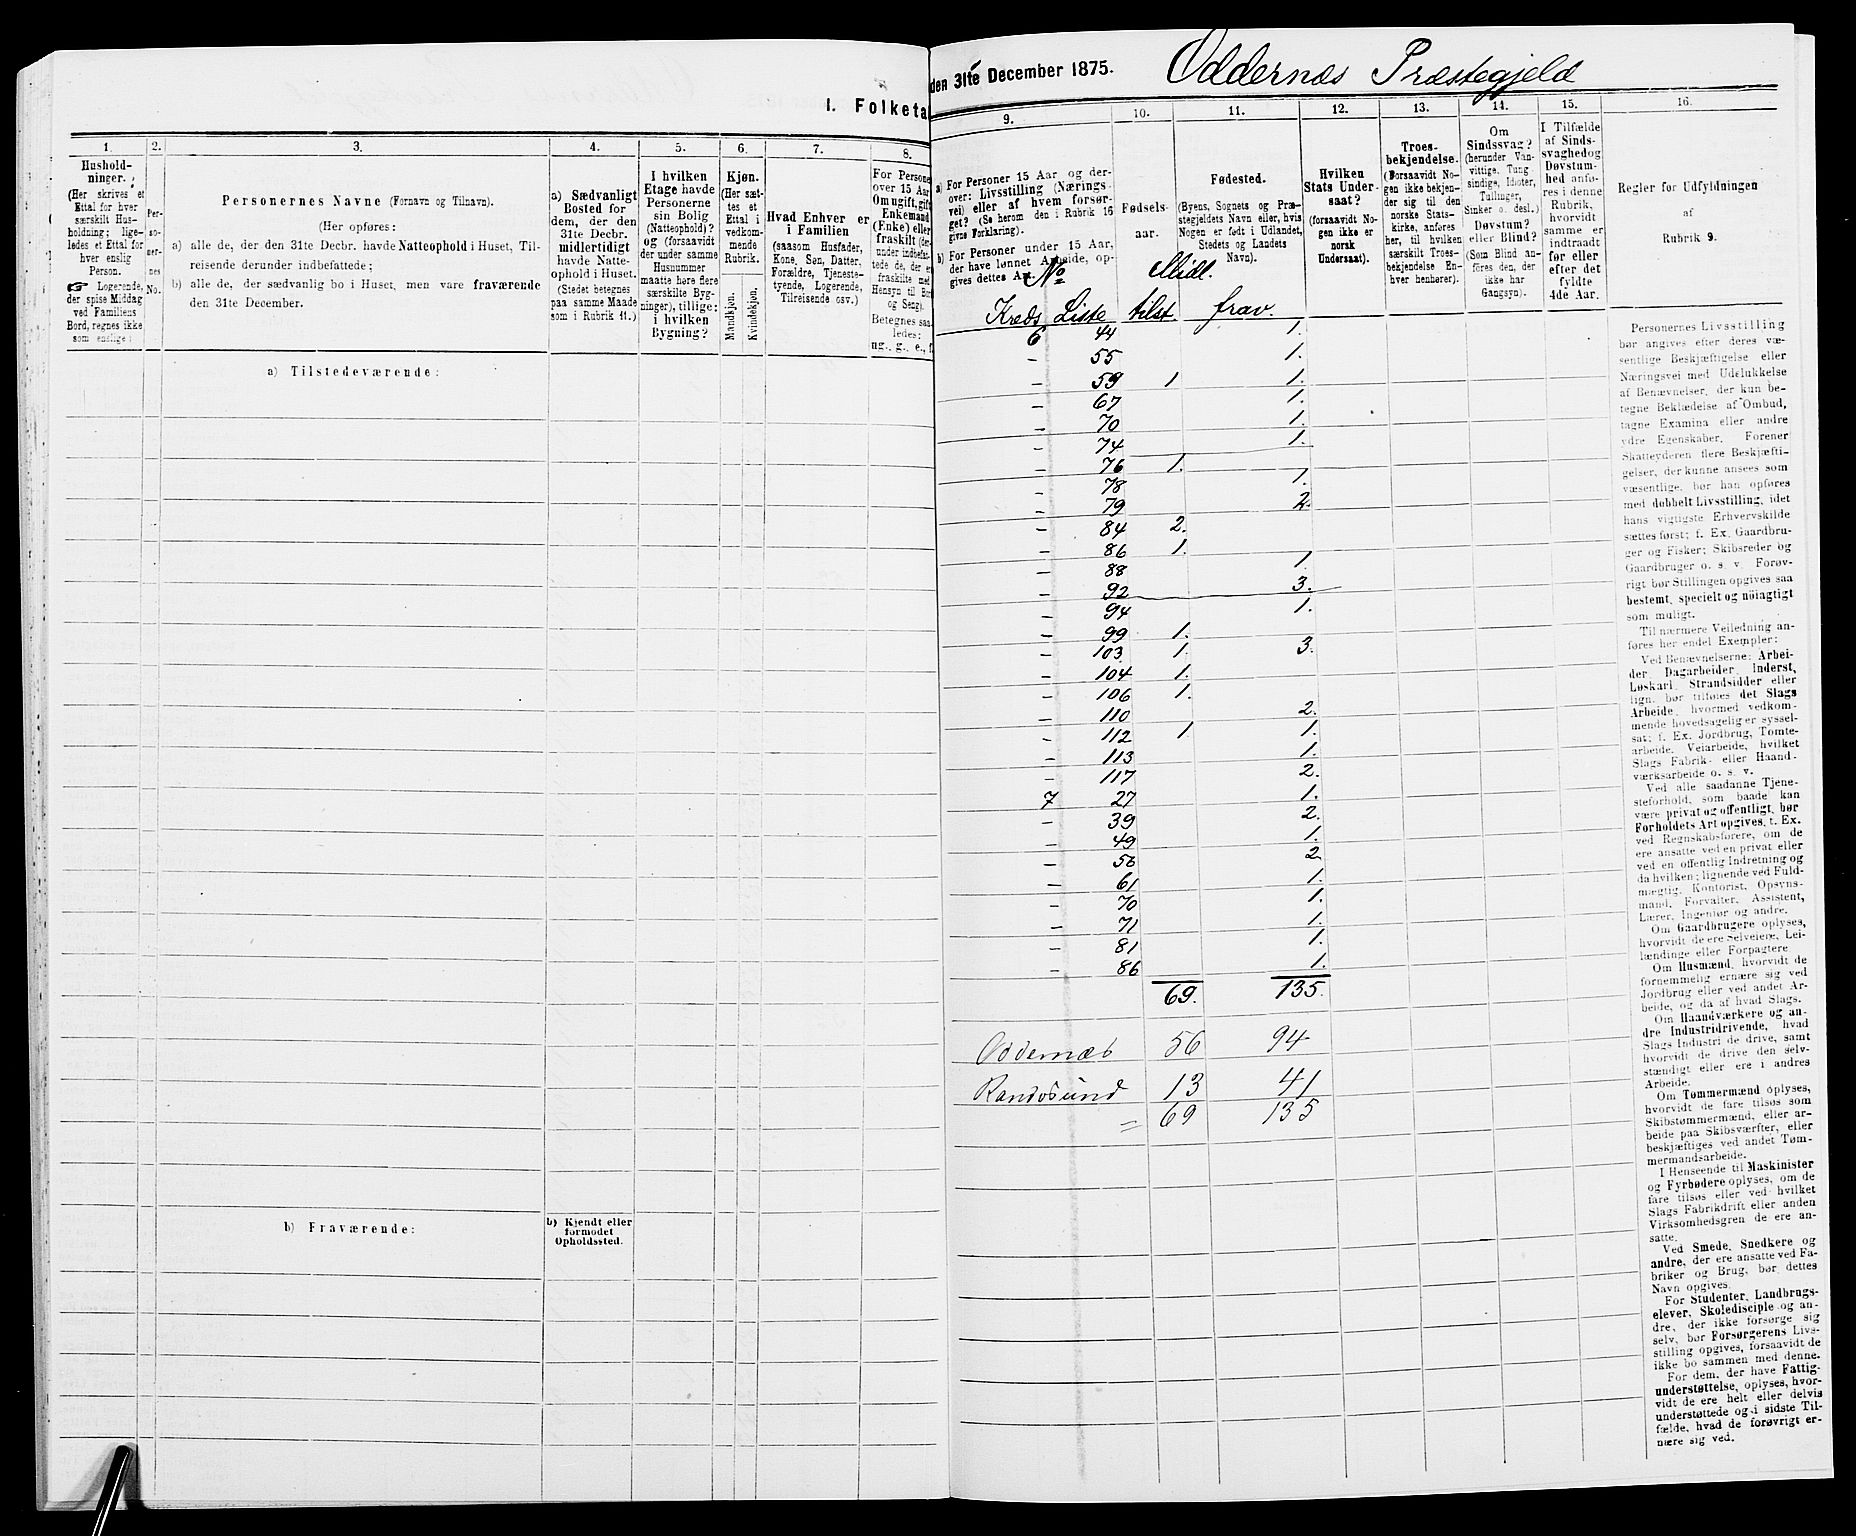 I. Folketa
1.
2.
3.
4.
5.
6.
7.
8.
Hushold-
ninger.
(Her skrives et
Ettal for hver
særskilt Hus-
holdning; lige-
ledes et Ettal for
hver enslig
Person.
☞ Logerende,
der spise Middag
ved Familiens
Bord, regnes ikke
som enslige)
Per-
so-
ner-
nes
No.
Personernes Navne (Fornavn og Tilnavn).
(Her opføres:
a) alle de, der den 31te Decbr. havde Natteophold i Huset, Til-
reisende derunder indbefattede;
b) alle de, der sædvanlig bo i Huset, men vare fraværende
den 31te December.
a) Sædvanligt
Bosted for
dem, der den
31te Decbr.
midlertidigt
havde Natte-
ophold i Huset.
(Stedet betegnes
paa samme Maade
som i Rubrik 11.)
I hvilken
Etage havde
Personerne
sin Bolig
(Natteophold)?
og (forsaavidt
der under samme
Husnummer
maatte høre flere
særskilte Byg-
ninger), tillige:
i hvilken
Bygning?
Kjøn.
(Her sæt-
tes et
Ettal i
vedkom-
mende
Rubrik.
Mandkjøn.
Kvindekjøn.
Hvad Enhver er
i Familien
(saasom Husfader,
Kone, Søn, Datter,
Forældre, Tjeneste-
tyende, Logerende,
Tilreisende osv.)
For Persone
over 15 Aar
Om ugift, gift
Enkemand
(Enke) eller
fraskilt (der-
under indbefat-
tede de, der er
fraskilte med
Hensyn til Bor
og Seng).
Betegnes saa-
ledes:
ug., g., e., f.
a) Tilstedeværende:
b) Fraværende:
b) Kjendt eller
formodet
Opholdssted.
den 31te December 1875.
Oddernæs Præstegjeld
9.
10.
11.
12.
13.
14.
15.
16.
a) For Personer 15 Aar og der-
over: Livsstilling (Nærings-
vei) eller af hvem forsør-
get? (Se herom den i Rubrik 16
givne Forklaring).
b) For Personer under 15 Aar,
der have lønnet Arbeide, op-
gives dettes A
Fødsels-
aar.
Fødested.
(Byens, Sognets og Præ-
stegjeldets Navn eller, hvis
Nogen er født i Udlandet,
Stedets og Landets
Navn).
Hvilken
Stats Under-
saat?
(forsaavidt No-
gen ikke er
norsk
Undersaat).
Troes-
bekjendelse.
(Forsaavidt No-
gen ikke bekjen-
der sig til den
norske Stats-
kirke, anføres
her, til hvilken
særskilt Troes-
bekjendelse En-
hver henhører).
Om
Sindssvag?
(herunder Van-
vittige, Tung
sindige, Idioter,
Tullinger,
Sinker o. desl.)
Døvstum?
eller Blind?
(Som Blind an-
føres den, der
ikke har
Gangsyn).
I Tilfælde
af Sinds-
svaghed og
Døvstum-
hed anfø-
res i denne
Rubrik,
hvorvidt
samme er
indtraadt
før eller
efter det
fyldte
4de Aar.
Regler for Udfyldningen
af
Rubrik 9.
No Midl.
Kreds Liste tilst. frav.
6 44 1.
– 55 1.
– 59 1 1.
– 67 1.
– 70 1.
– 74 1.
– 76 1.
– 78 1.
– 79 2.
– 84 2.
– 86 1.
– 88 1.
– 92 3.
– 94 1.
– 99 1.
– 103 1. 3.
– 104 1.
– 106 1.
– 110 2.
– 112 1 1.
– 113 1.
– 117 2.
7 27 1.
– 39 2.
– 49 1.
– 56 2
– 61 1.
– 70 1.
– 71 1.
– 81 1.
– 86 1.
69. 135.
Oddernæs 56 94
Randøsund 13 41
= 69 135
Personernes Livsstilling
bør angives efter deres væ-
sentlige Beskjæftigelse eller
Næringsvei med Udelukkelse
af Benævnelser, der kun be-
tegne Beklædelse af Ombud,
tagne Examina eller andre
ydre Egenskaber. Forener
Skatteyderen flere Beskjæfti-
gelser, der kunne ansees som
væsentlige, bør han opføres
med dobbelt Livsstilling, idet
hans vigtigste Erhvervskilde
sættes først; f. Ex. Gaardbru-
ger og Fisker; Skibsreder og
Gaardbruger o. s. v. Forøv-
rigt bør Stillingen opgives saa
bestemt, specielt og nöiagtigt
som muligt.
Til nærmere Veiledning an-
føres her endel Exempler:
Ved Benævnelserne: Arbei-
der, Dagarbeider, Inderst,
Løskarl, Strandsidder eller
lign. bør tilføies det Slags
Arbeide, hvormed vedkom-
mende hovedsagelig er syssel-
sat; f. Ex. Jordbrug, Tomte-
arbeide, Veiarbeide, hvilket
Slags Fabrik- eller Haand-
værksarbeide o. s. v.
Ved alle saadanne Tjene-
steforhold, som baade kan
være privat og offentligt, bør
Forholdets Art opgives, f. Ex.
ved Regnskabsførere, om de
ere ansatte ved en privat eller
ved en offentlig Indretning og
da hvilken; lignende ved Fuld-
mægtig, Kontorist, Opsyns-
mand, Forvalter, Assistent,
Lærer, Ingeniør og andre.
Om Gaardbrugere oplyses,
hvorvidt de ere Selveiere, Lei-
lændinge eller Forpagtere
Om Husmænd, hvorvidt de
fornemmelig ernære sig ved
Jordbrug eller ved andet Ar-
beide, og da af hvad Slags.
Om Haandværkere og an-
dre Industridrivende, hvad
Slags Industri de drive, samt
hvorvidt de drive den selv-
stændigt eller ere i andres
Arbeide.
Om Tømmermænd oplyses,
hvorvidt de fare tilsøs som
Skibstømmermænd, eller ar-
beide paa Skibsværfter, eller
beskjæftiges ved andet Tøm-
mermandsarbeide.
I Henseende til Maskinister
og Fyrbødere oplyses, om de
fare tilsøs eller ved hvilket
Slags Fabrikdrift eller anden
Virksomhedsgren de ere an-
satte.
Ved Smede, Snedkere og
andre, der ere ansatte ved Fa-
briker og Brug, bør dettes
Navn opgives.
For Studenter, Landbrugs-
elever, Skoledisciple og an-
dre, der ikke forsørge sig
selv, bør Forsørgerens Livs-
stilling opgives, forsaavidt de
ikke bo sammen med denne.
For dem, der have Fattig-
understøttelse, oplyses, hvor-
vidt de ere helt eller delvis
understøttede og i sidste Til-
fælde, hvad de forøvrigt er-
nære sig ved.